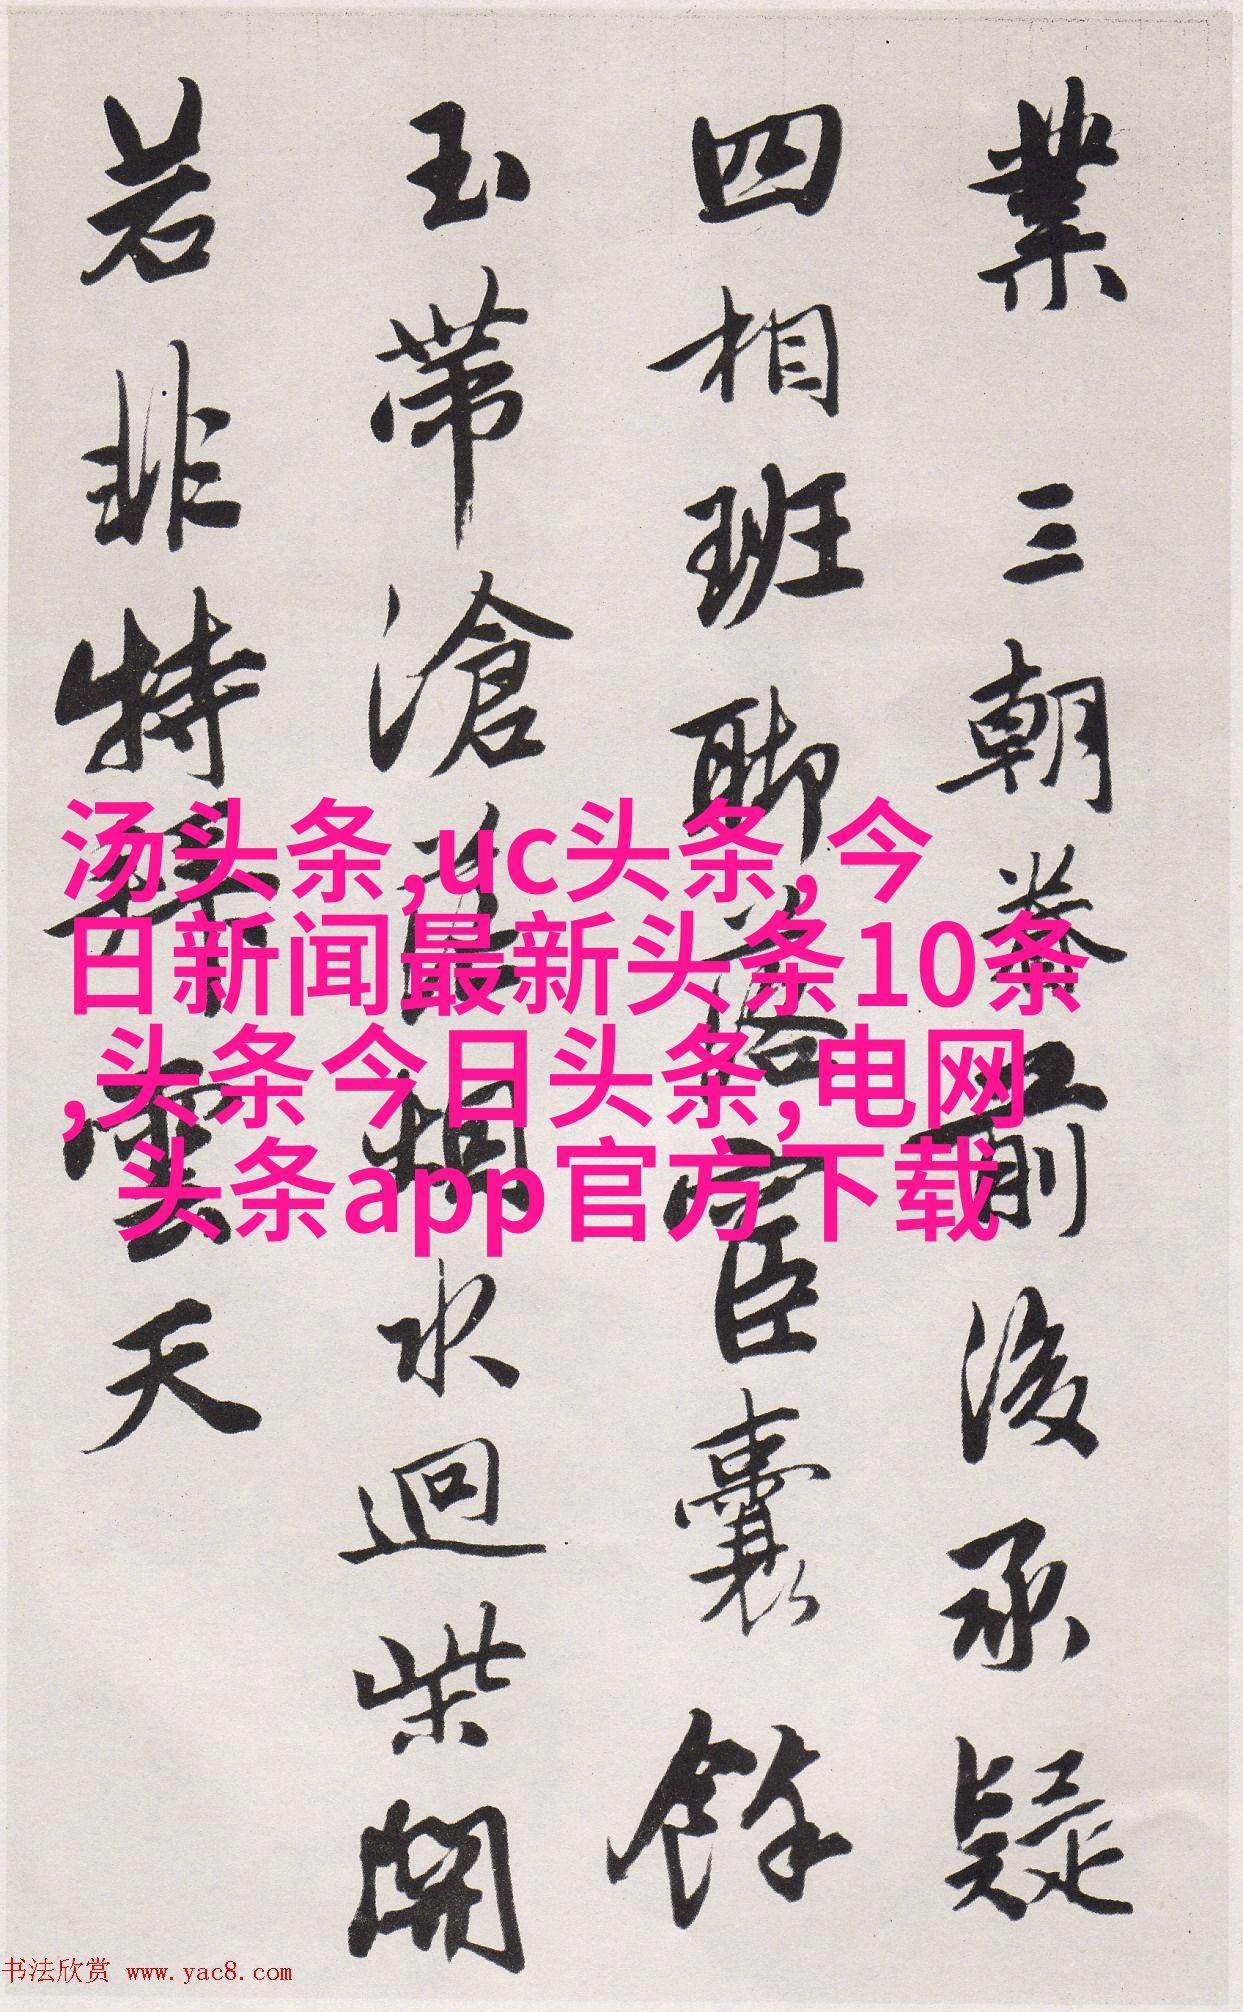 業 三朝前後承疑
四相班聊落宦囊餘
玉帶滄水迴柴開
若非特雲天
汤头条,uc头条,今
日新闻最新头条10条
,头条今日头条,电网
头条app官方下载
书法欣赏 www.yac8.com